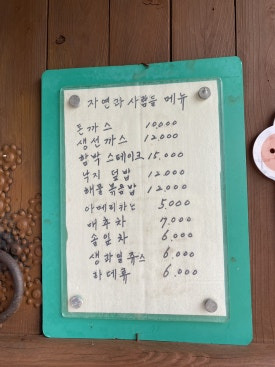 자연과 사람들 메뉴
돈까스 10,000
생선까스 12,000
함박 스테이크 15,000
낙지 덮밥 12,000
해물볶음밥 12,000
아메리카노 5,000
매후차 7,000
솔잎차 6,000
생과일쥬스 6,000
라떼류 6,000